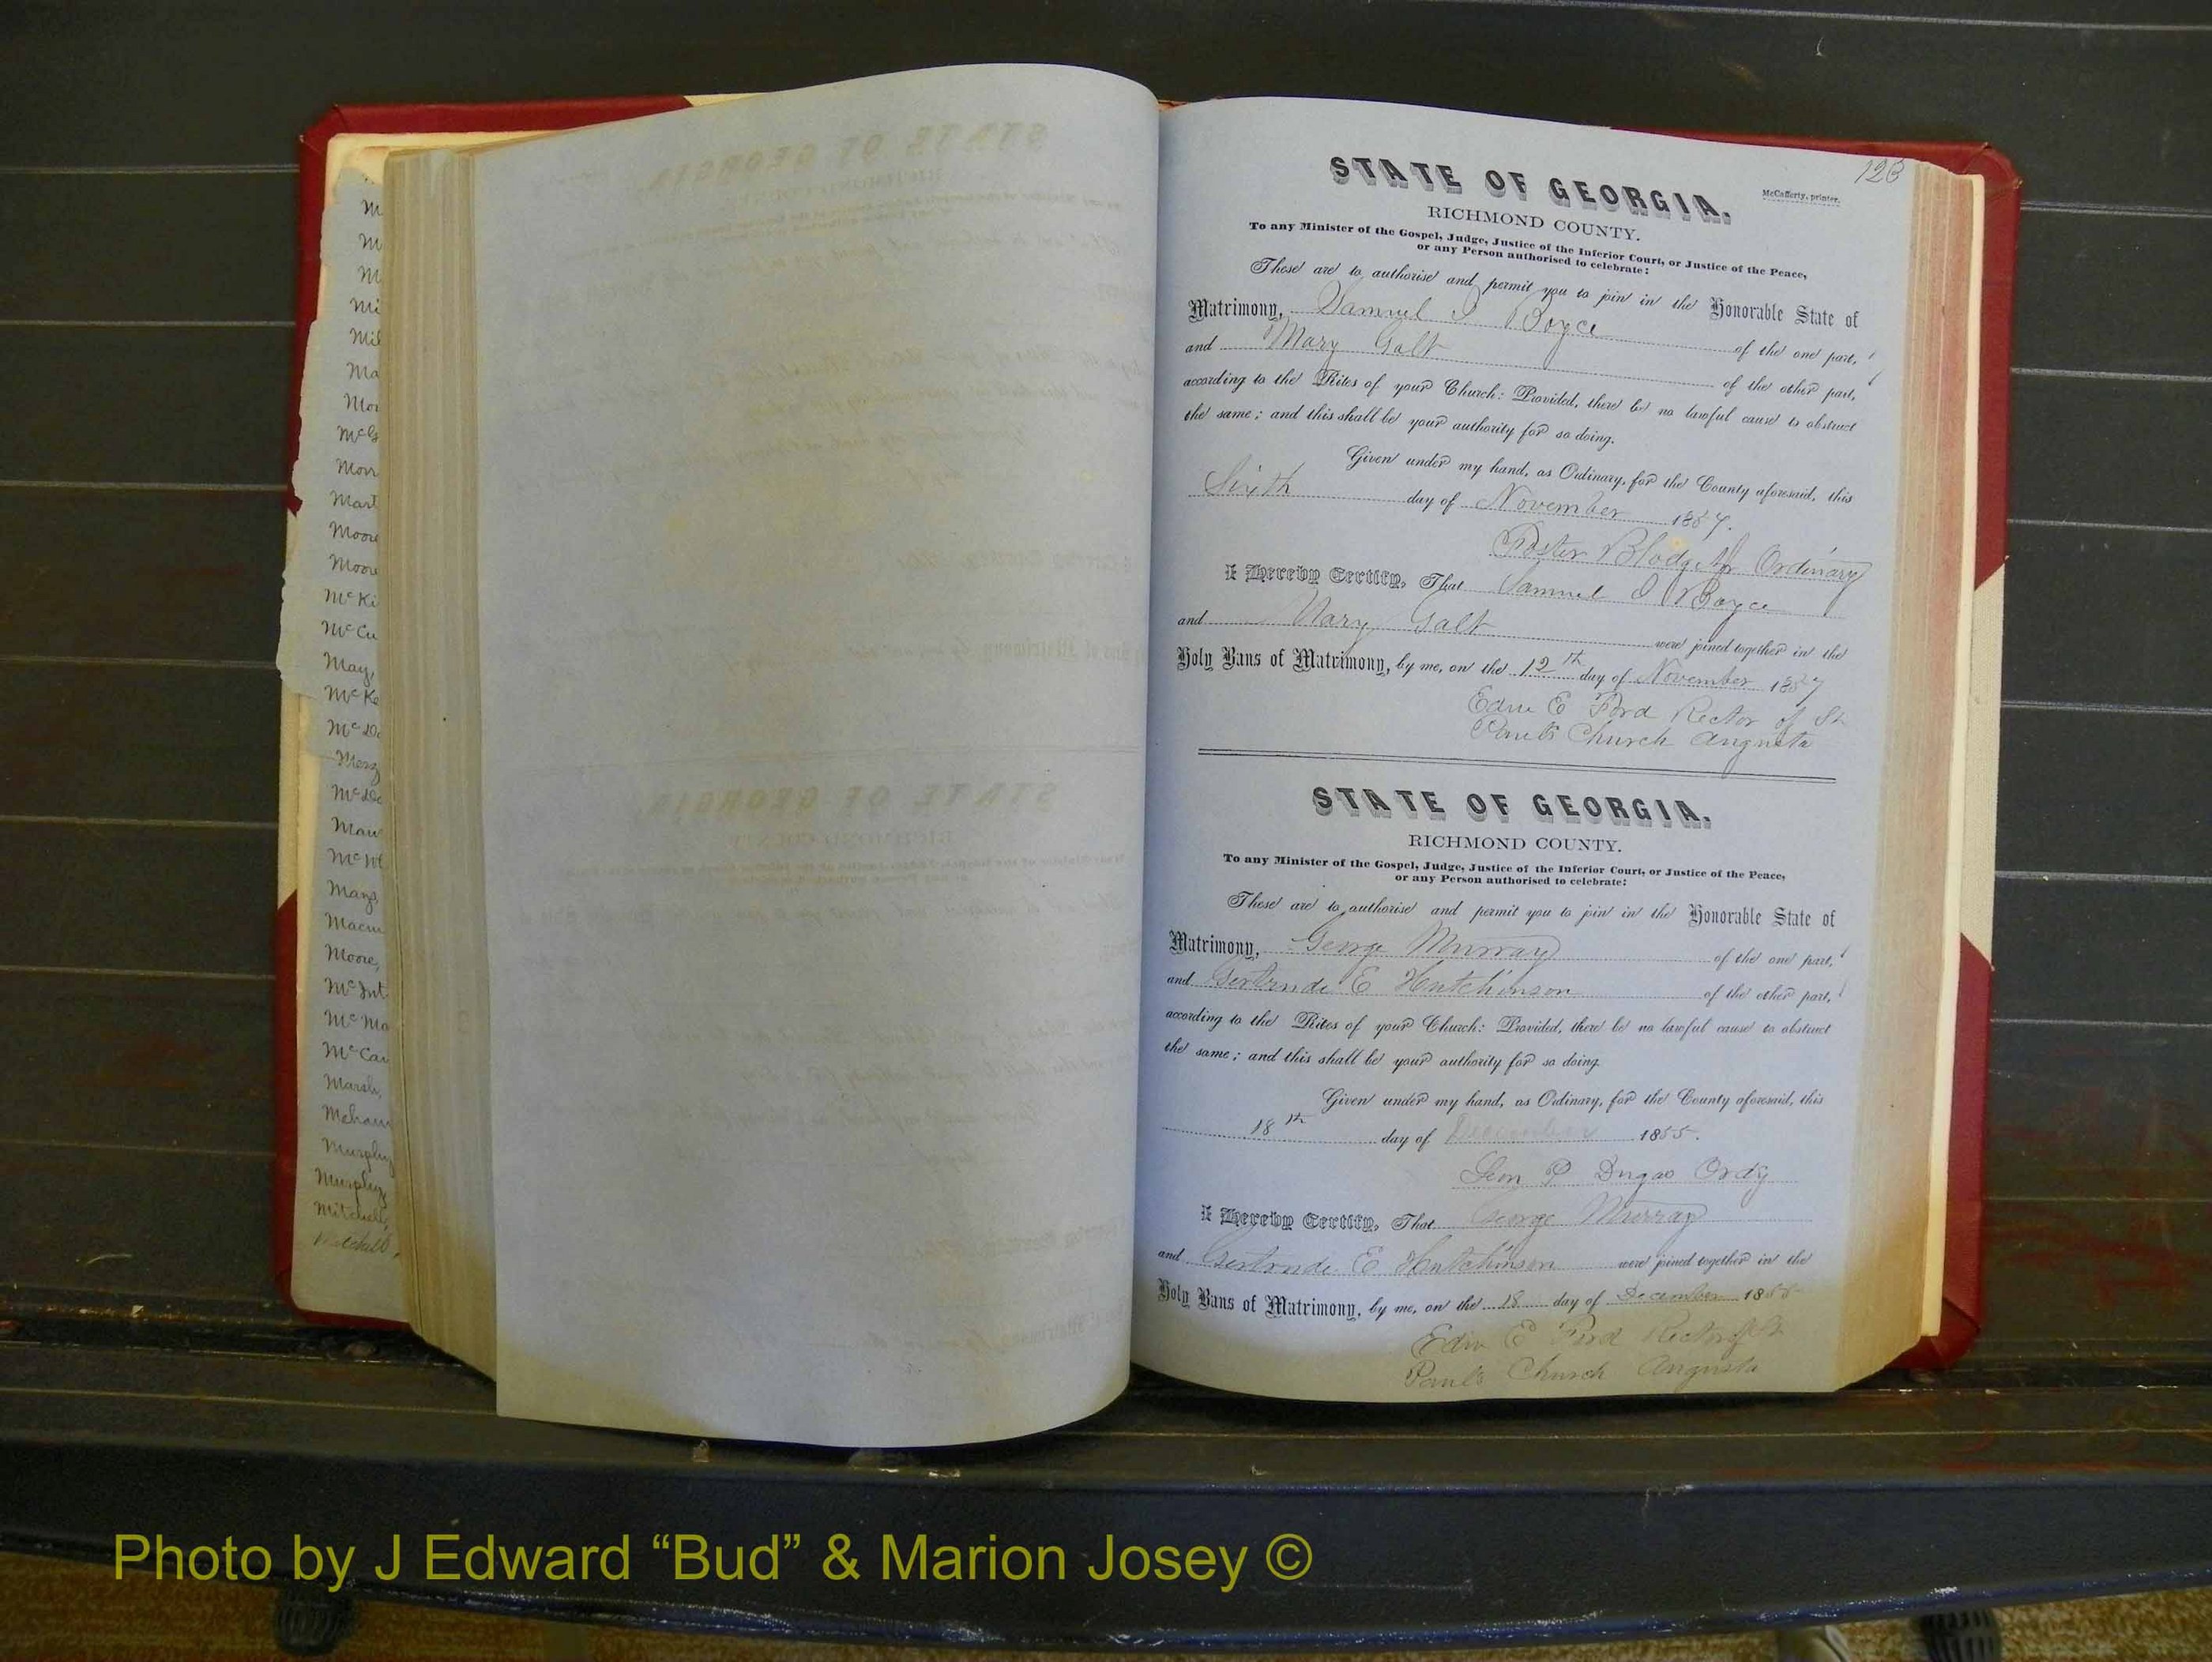 M
M
M
Mi
Mil
Ma
Mor
McG
Morr
Mart
Moore
Moore
McKi
McCu
May,
McKe
McDo
Merg
McDo
Mau
McWl
Mays
Macm
Moore,
McInt
McMa
McCar
Marsh,
Mehan
Murphy
Murphy,
Mitchell,
Mitchell,
123
STATE OF GEORGIA.
McCafferty, printer.
RICHMOND COUNTY.
To any Minister of the Gospel, Judge, Justice of the Inferior Court, or Justice of the Peace,
or any Person authorised to celebrate:
These are to authorise and permit you to join in the Honorable State of
Matrimony, Samuel Boyce of the one part,
and Mary Galt of the other part,
according to the Rites of your Church: Provided, there be no lawful cause to obstruct
the same; and this shall be your authority for so doing.
Given under my hand, as Ordinary, for the County aforesaid, this
Sixth day of November 1857.
Foster Blodget Jr Ordinary
I Hereby Certify, That Samuel Boyce
and Mary Galt were joined together in the
Holy Bans of Matrimony, by me, on the 12th day of November 1857
Edw E Ford Rector of St
Pauls Church Augusta
STATE OF GEORGIA.
RICHMOND COUNTY.
To any Minister of the Gospel, Judge, Justice of the Inferior Court, or Justice of the Peace,
or any Person authorised to celebrate:
These are to authorise and permit you to join in the Honorable State of
Matrimony, George Murray of the one part,
and Gertrude E Hutchinson of the other part,
according to the Rites of your Church: Provided, there be no lawful cause to obstruct
the same; and this shall be your authority for so doing.
Given under my hand, as Ordinary, for the County aforesaid, this
18th day of December 1855.
Leon P Dugas Ordy
I Hereby Certify, That George Murray
and Gertrude E Hutchinson were joined together in the
Holy Bans of Matrimony, by me, on the 18 day of December 1855
Edw E Ford Rector of St
Pauls Church Augusta
Photo by J Edward “Bud” & Marion Josey ©